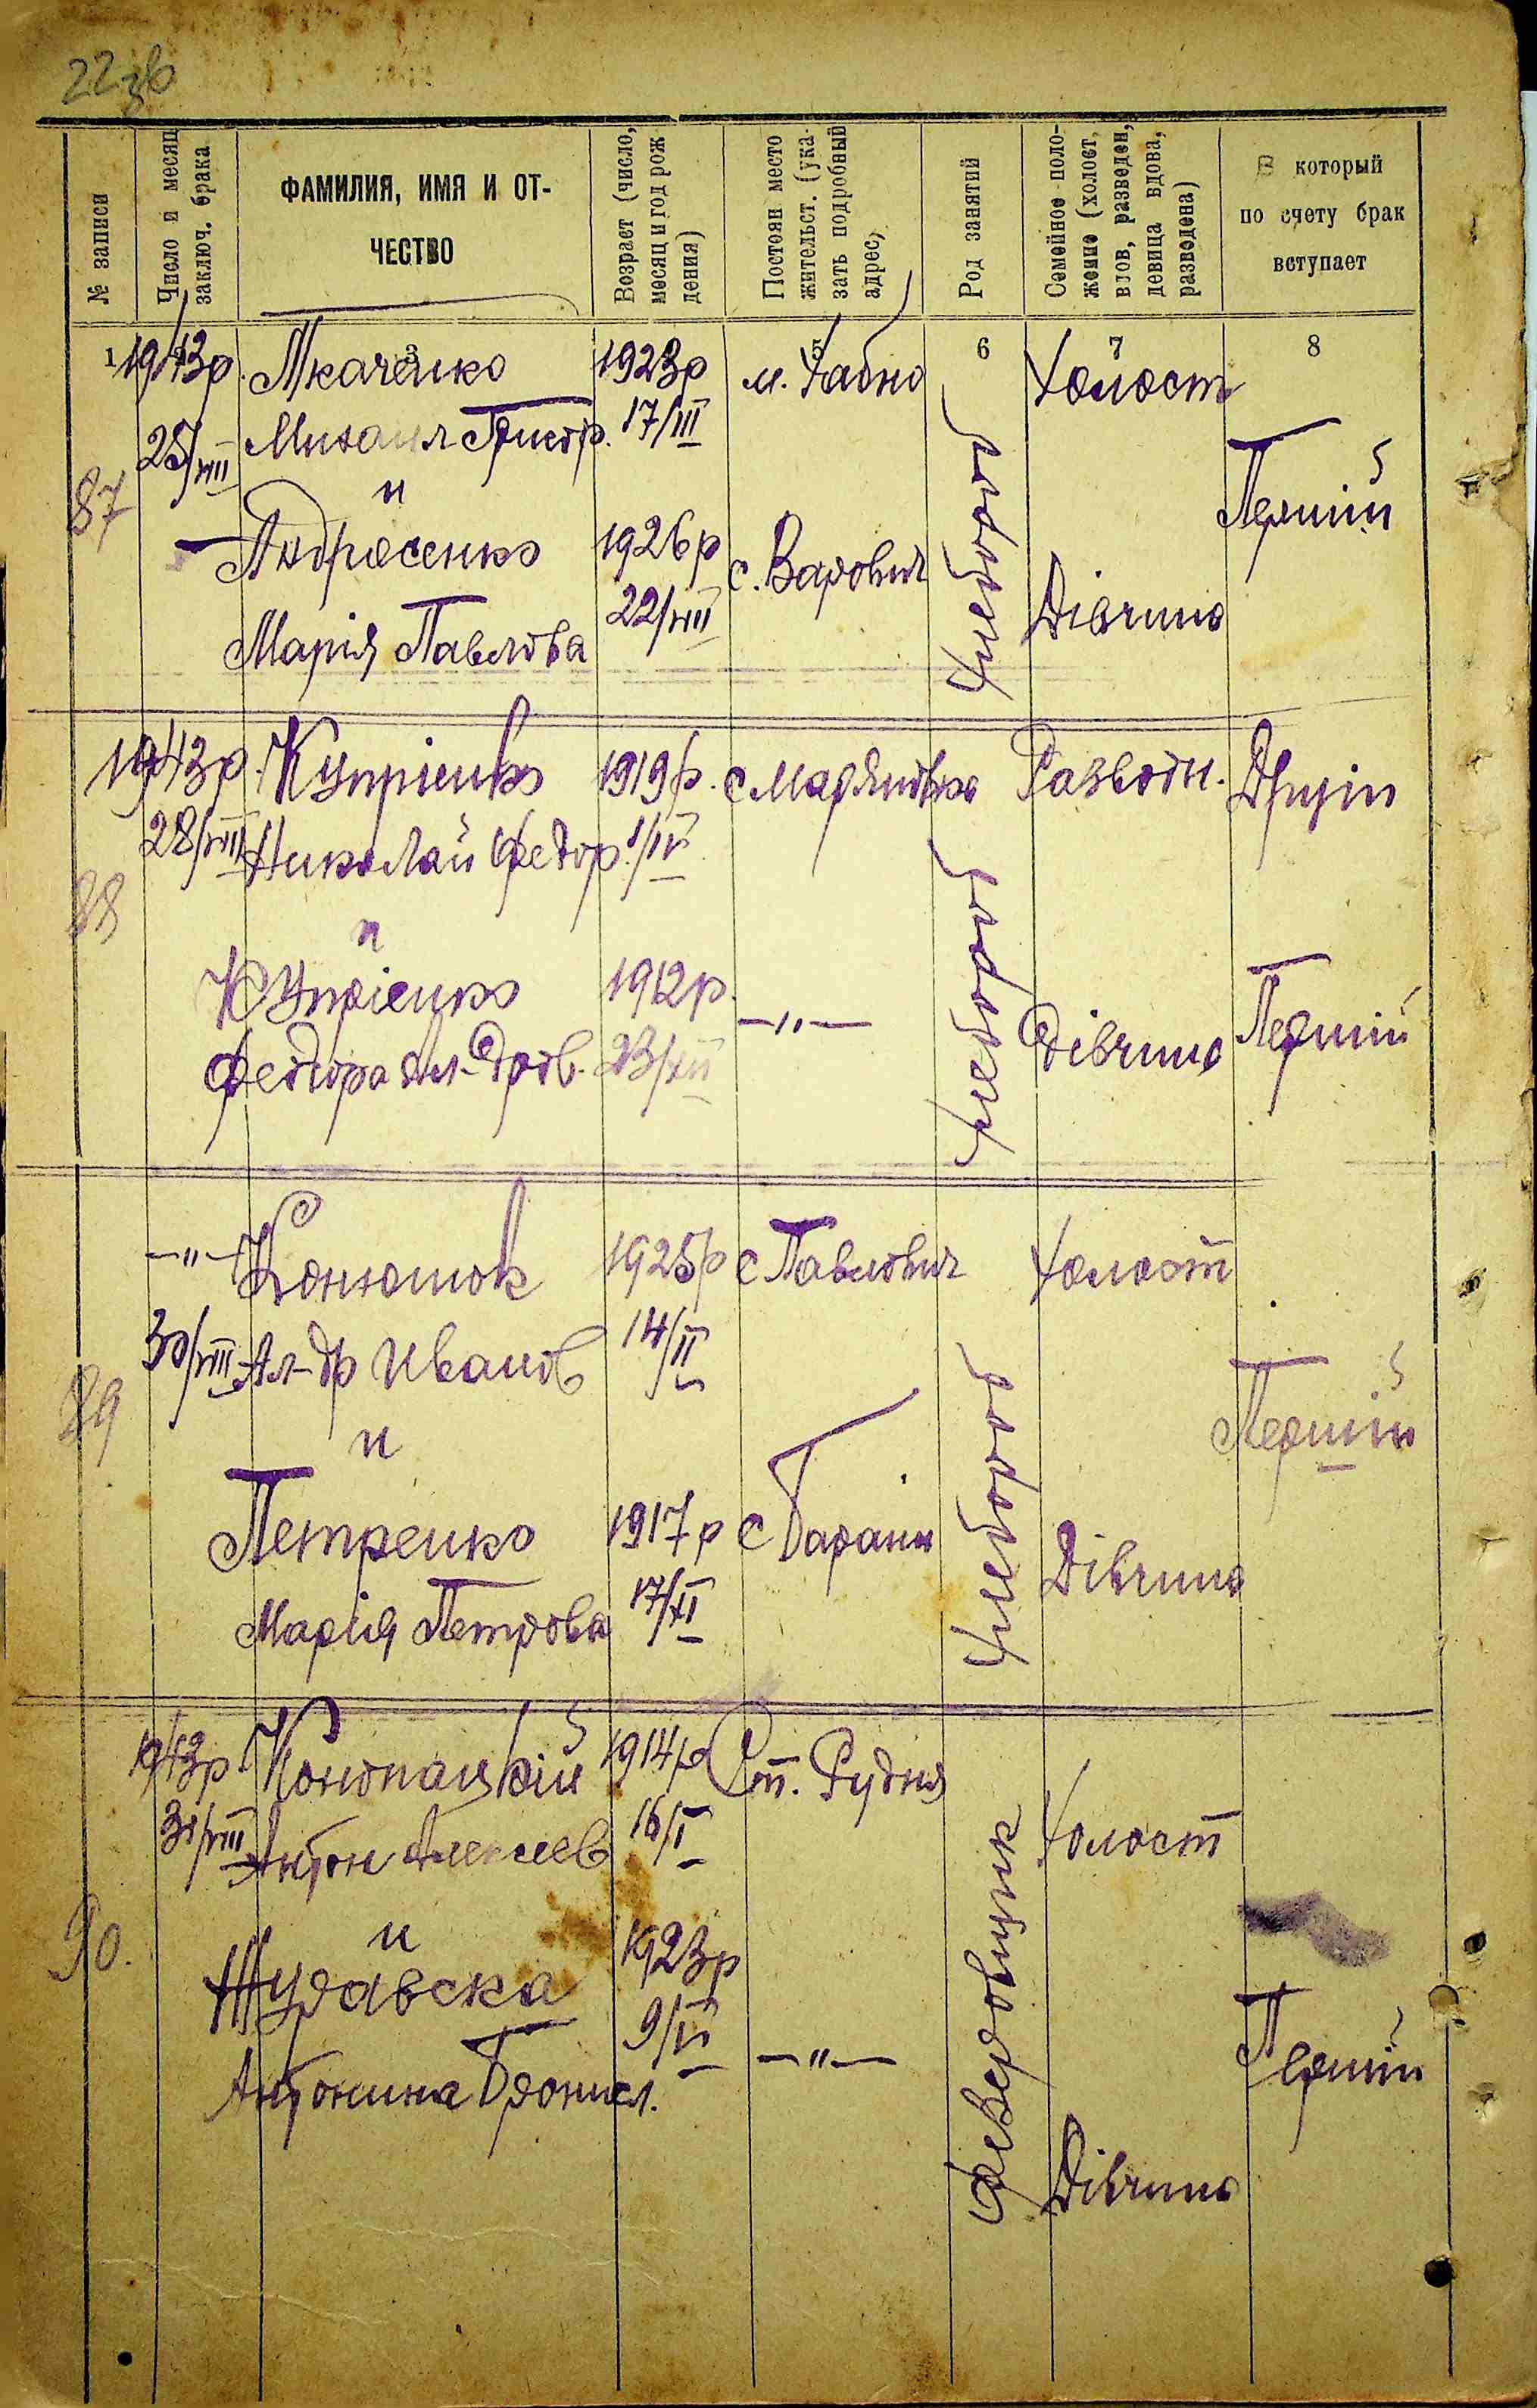 22зв
№ записи
Число и месяц
заключ. брака
ФАМИЛИЯ, ИМЯ И ОТ-
ЧЕСТВО
Возраст (число,
месяц и год рож
дения)
Постоян место
жительст. (ука-
зать подробный
адрес,
Род занятий
Семейное поло-
жение (холост,
вдов, разведен,
девица вдова,
разведена)
В который
по счету брак
вступает
1 3 5 6 7 8
87
1943р
25/VIII
Ткаченко
Михаил Григор.
1923р
17/III
м. Хабно
Хлебороб
Холост
Перший
и
Андросенко
Марія Павлова
1926р
22/VIII
с. Варович
Дівчина
88
1943р.
28/VIII
Купріенко
Николай Федор.
1919р.
1/IV
с Мар'яновка
Хлебороб
Разводн.
Другій
и
Купріенко
Федора Ал-дров.
1912р.
23/XII
—"—
Дівчина
Перший
89
—"—
30/VIII
Конюшок
Ал-др Иванов
1925р
14/II
с Павлович
Хлебороб
Холост
Перший
и
Петренко
Марія Петрова
1917р
17/XI
с Варвин
Дівчина
90.
1943р
31/VIII
Конопацкій
Антон Алексеев
1914р
16/I
Сп. Рудня
Холост
Перший
и
Журавска
Антонина Бронисл.
1923р
9/IV
—"—
Дівчина